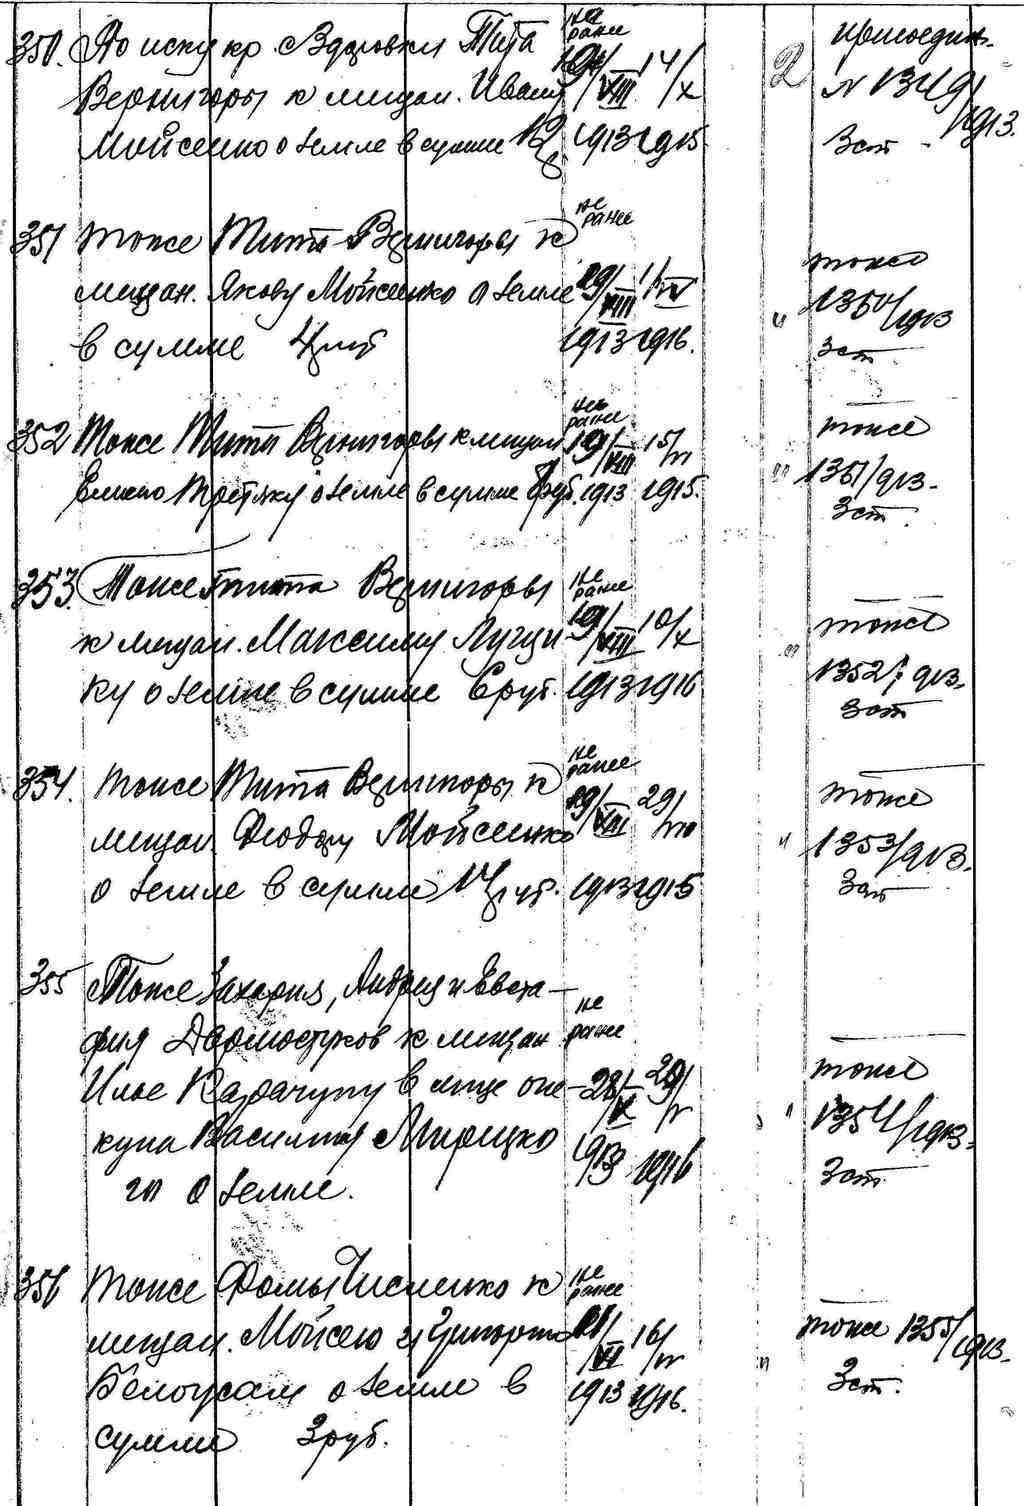 350. По иску кр. Здоровки Тита не ранее 14/X 2 присоедин.
Вернигоры к мещан. Ивану /VIII N 1349/1913.
Мойсеенко о земле в сумме 12 р. 1913 1915. 3 ст.
351 тоже Тита Вернигоры к не ранее
мещан. Якову Мойсеенко о земле 19/VIII тоже
в сумме 4 руб 1913 1916. " 1350/1913
3 ст.
352 Тоже Тита Вернигоры к мещан не ранее 19/VIII 15/ тоже
Третяку о земле в сумме руб. 1913 1915. " 1351/913.
3 ст.
353. Тоже Тита Вернигоры не ранее
к мещан. Максиму Лугци- 19/VIII 10/X тоже
ку о земле в сумме 6 руб. 1913 1916 " 1352/913.
3 ст
354. тоже Тита Вернигоры к не ранее
мещан. Феодору Мойсеенко 19/VIII 29/ тоже
о земле в сумме 14 руб. 1913 1915 " 1353/913.
3 ст
355 Тоже Захария, Андрея и Евста-
фия Дармостуков к мещан не ранее
Илье Карачуну в лице опе- 28/X 29/ тоже
куна Василия Мирецко 1913 1916 " 1354/1913.
го о земле. 3 ст.
356 тоже Фомы Численко к не ранее
мещан. Мойсею и Григорию 21/VI 16/ тоже 1355/1913.
Белоусам о земле в 1913 1916. " 3 ст.
сумме 3 руб.